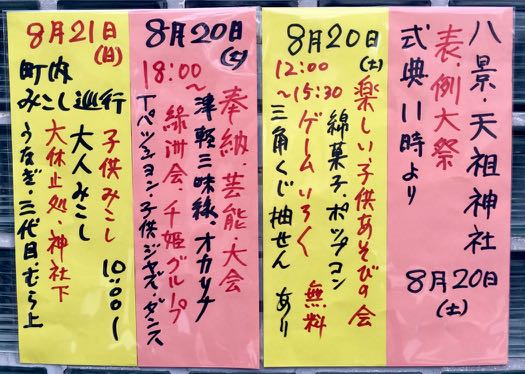 八景・天祖神社
表・例大祭
式典11時より
8月20日
(土)
8月20日
(土)
12:00
~15:30
楽しい子供あそびの会
綿菓子・ポップコン
ゲームいろ〱 無料
三角くじ抽せん あり
8月20日
(土)
18:00~
奉納・芸能・大会
津軽三味線・オカリナ
緑洲会・千姫グループ
Tペッション・子供ジャズ・ダンス
8月21日
(日)
町内
みこし巡行
子供みこし
大人みこし 10:00~
大休止処・神社下
うなぎ・三代目むら上